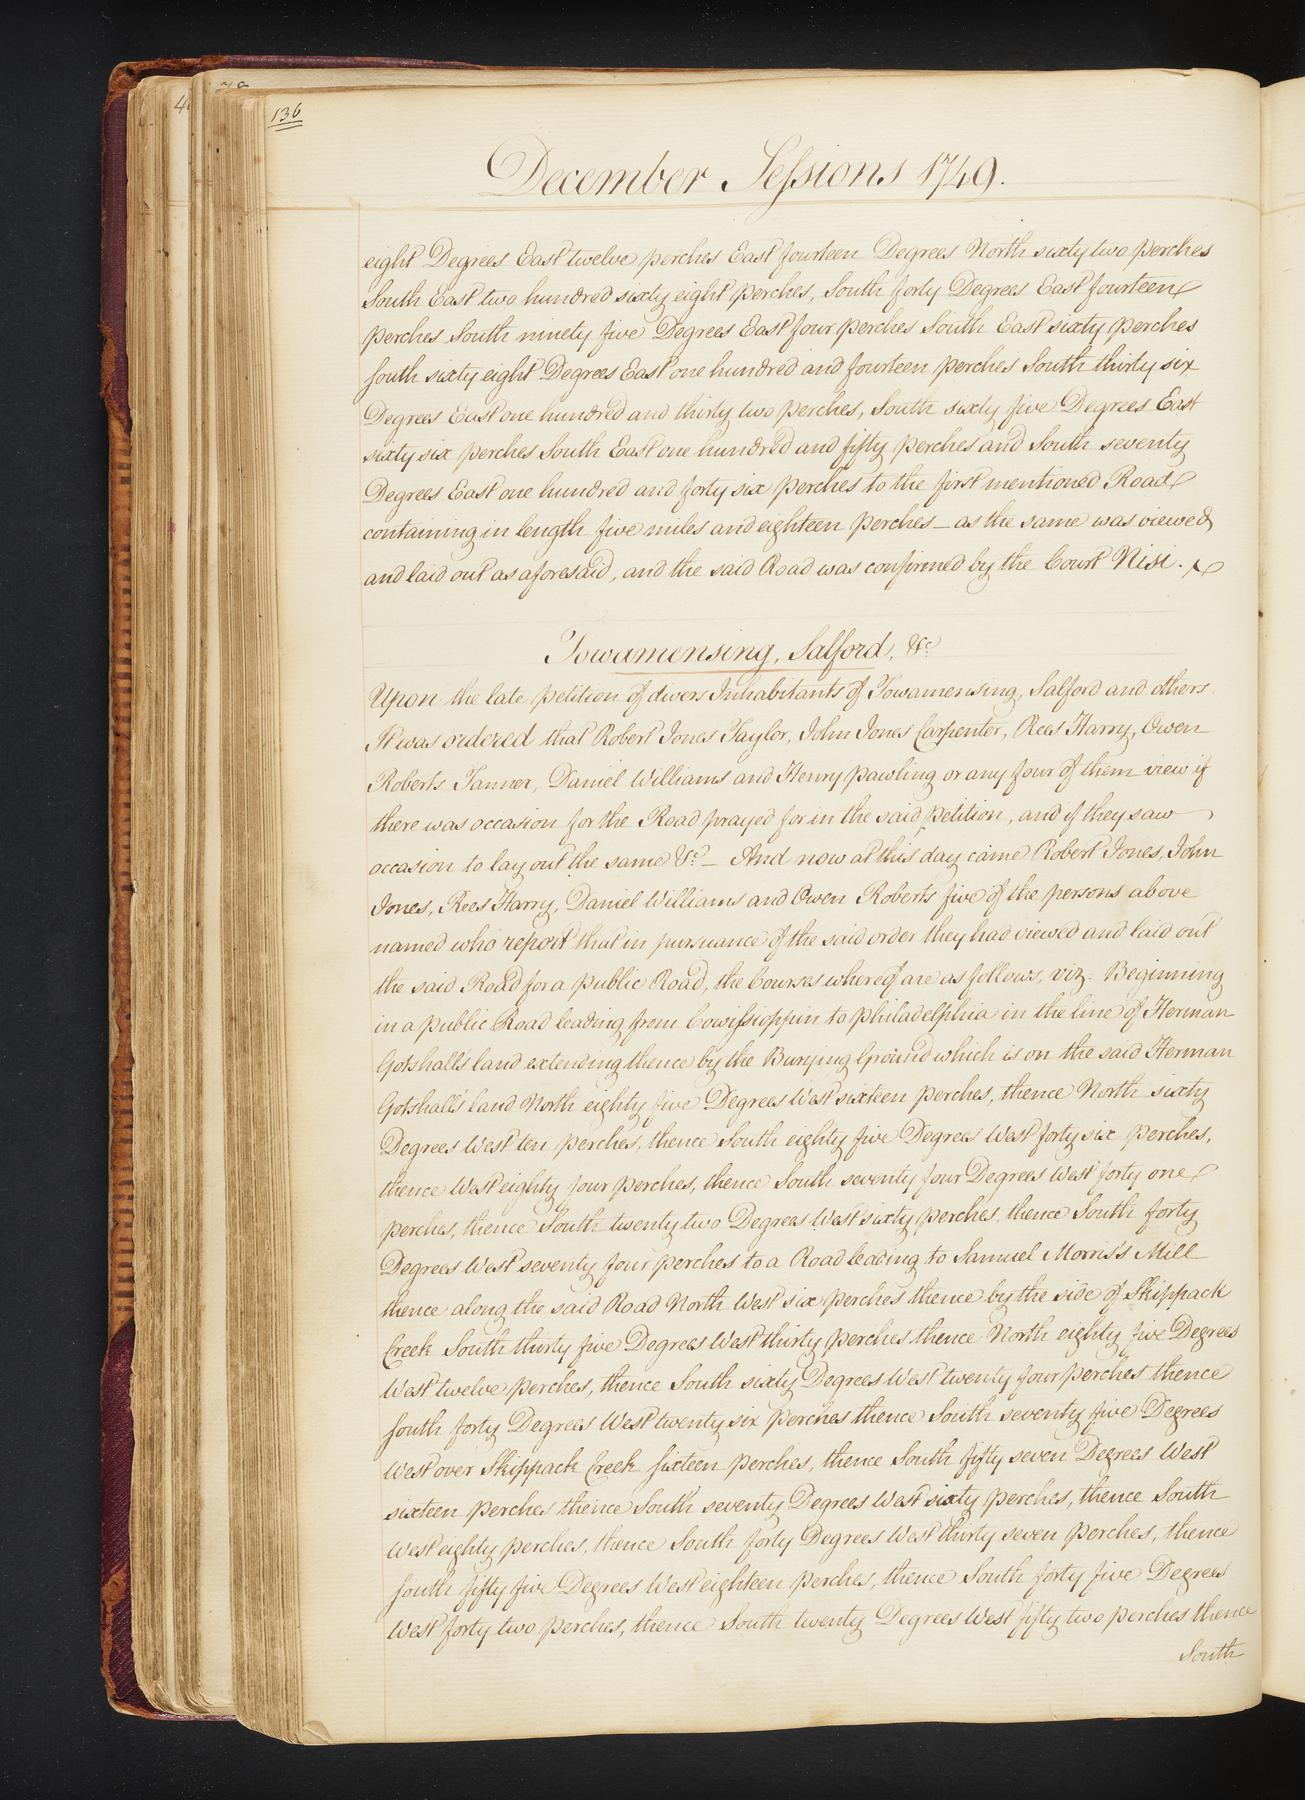 136
December Sessions 1749.
eight Degrees East twelve perches East fourteen Degrees North sixty two perches
South East two hundred sixty eight perches, South forty Degrees East fourteen
perches South ninety five Degrees East four perches South East sixty perches
South sixty eight Degrees East one hundred and fourteen perches South thirty six
Degrees East one hundred and thirty two perches, South sixty five Degrees East
sixty six perches South East one hundred and fifty perches and South seventy
Degrees East one hundred and forty six perches to the first mentioned Road
containing in length five miles and eighteen perches – as the same was viewed
and laid out as aforesaid, and the said Road was confirmed by the Court Nisi.
Towamensing, Salford, &c
Upon the late petition of divers Inhabitants of Towamensing, Salford and others
It was ordered that Robert Jones Taylor, John Jones Carpenter, Rees Harry, Owen
Roberts Tanner, Daniel Williams and Henry pawling or any four of them view if
there was occasion for the Road prayed for in the said petition, and if they saw
occasion to lay out the same &c – And now at this day came Robert Jones, John
Jones, Rees Harry, Daniel Williams and Owen Roberts five of the persons above
named who report that in pursuance of the said order they had viewed and laid out
the said Road for a public Road, the Courses whereof are as follows, viz: Beginning
in a public Road leading from Cowissioppin to philadelphia in the line of Herman
Gotshall's land extending thence by the Burying Ground which is on the said Herman
Gotshall's land North eighty five Degrees West sixteen perches, thence North sixty
Degrees West ten perches, thence South eighty five Degrees West forty six perches,
thence West eighty four perches, thence South seventy four Degrees West forty one
perches, thence South twenty two Degrees West sixty perches, thence South forty
Degrees West seventy four perches to a Road leading to Samuel Morris's Mill
thence along the said Road North West six perches thence by the side of Skippack
Creek South thirty five Degrees West thirty perches thence North eighty five Degrees
West twelve perches, thence South sixty Degrees West twenty four perches thence
South forty Degrees West twenty six perches thence South seventy five Degrees
West over Skippack Creek sixteen perches, thence South fifty seven Degrees West
sixteen perches thence South seventy Degrees West sixty perches, thence South
West eighty perches, thence South forty Degrees West thirty seven perches, thence
South fifty five Degrees West eighteen perches, thence South forty five Degrees
West forty two perches, thence South twenty Degrees West fifty two perches thence
South